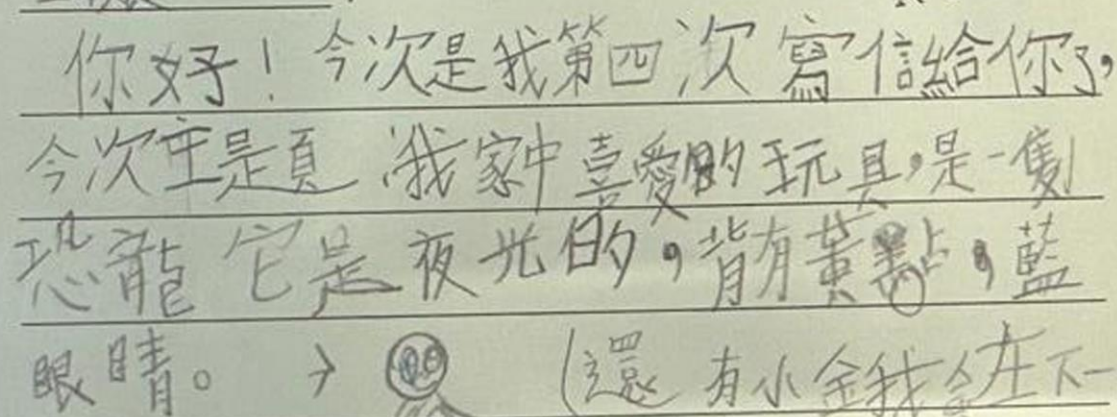 你好！今次是我第四次寫信給你了，
今次主題我家中喜愛的玩具，是一隻
恐龍它是夜光的，背有黃點，藍
眼睛。→（還有小 我會在下一